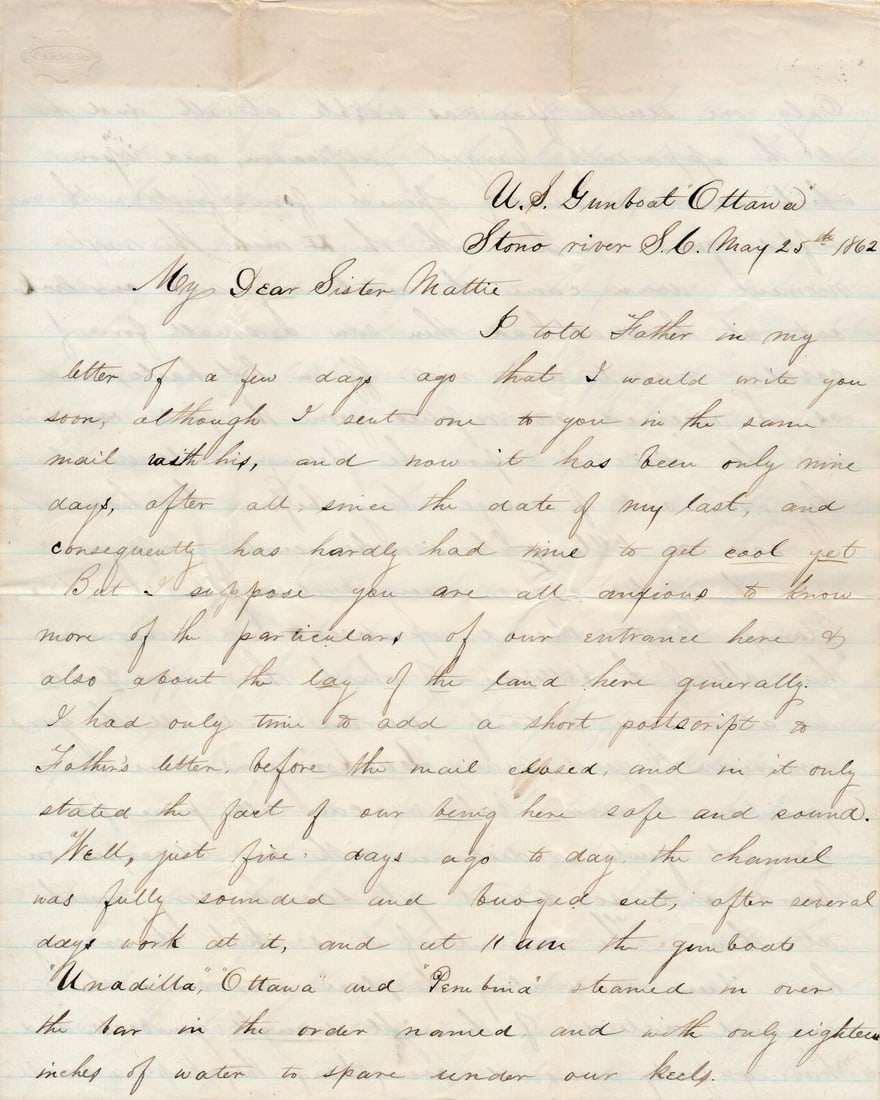 CARSON'S
U.S. Gunboat "Ottawa"
Stono river S.C. May 25th 1862
My Dear Sister Mattie
I told Father in my
letter of a few days ago that I would write you
soon, although I sent one to you in the same
mail with his, and now it has been only nine
days, after all, since the date of my last, and
consequently has hardly had time to get cool yet
But I suppose you are all anxious to know
more of the particulars of our entrance here &
also about the lay of the land here generally.
I had only time to add a short postscript to
Father's letter, before the mail closed, and in it only
stated the fact of our being here safe and sound.
Well, just five days ago to day the channel
was fully sounded and buoyed out, after several
days work at it, and at 11 am the gunboats
"Unadilla", "Ottawa" and "Pembina" steamed in over
the bar in the order named and with only eighteen
inches of water to spare under our keels.